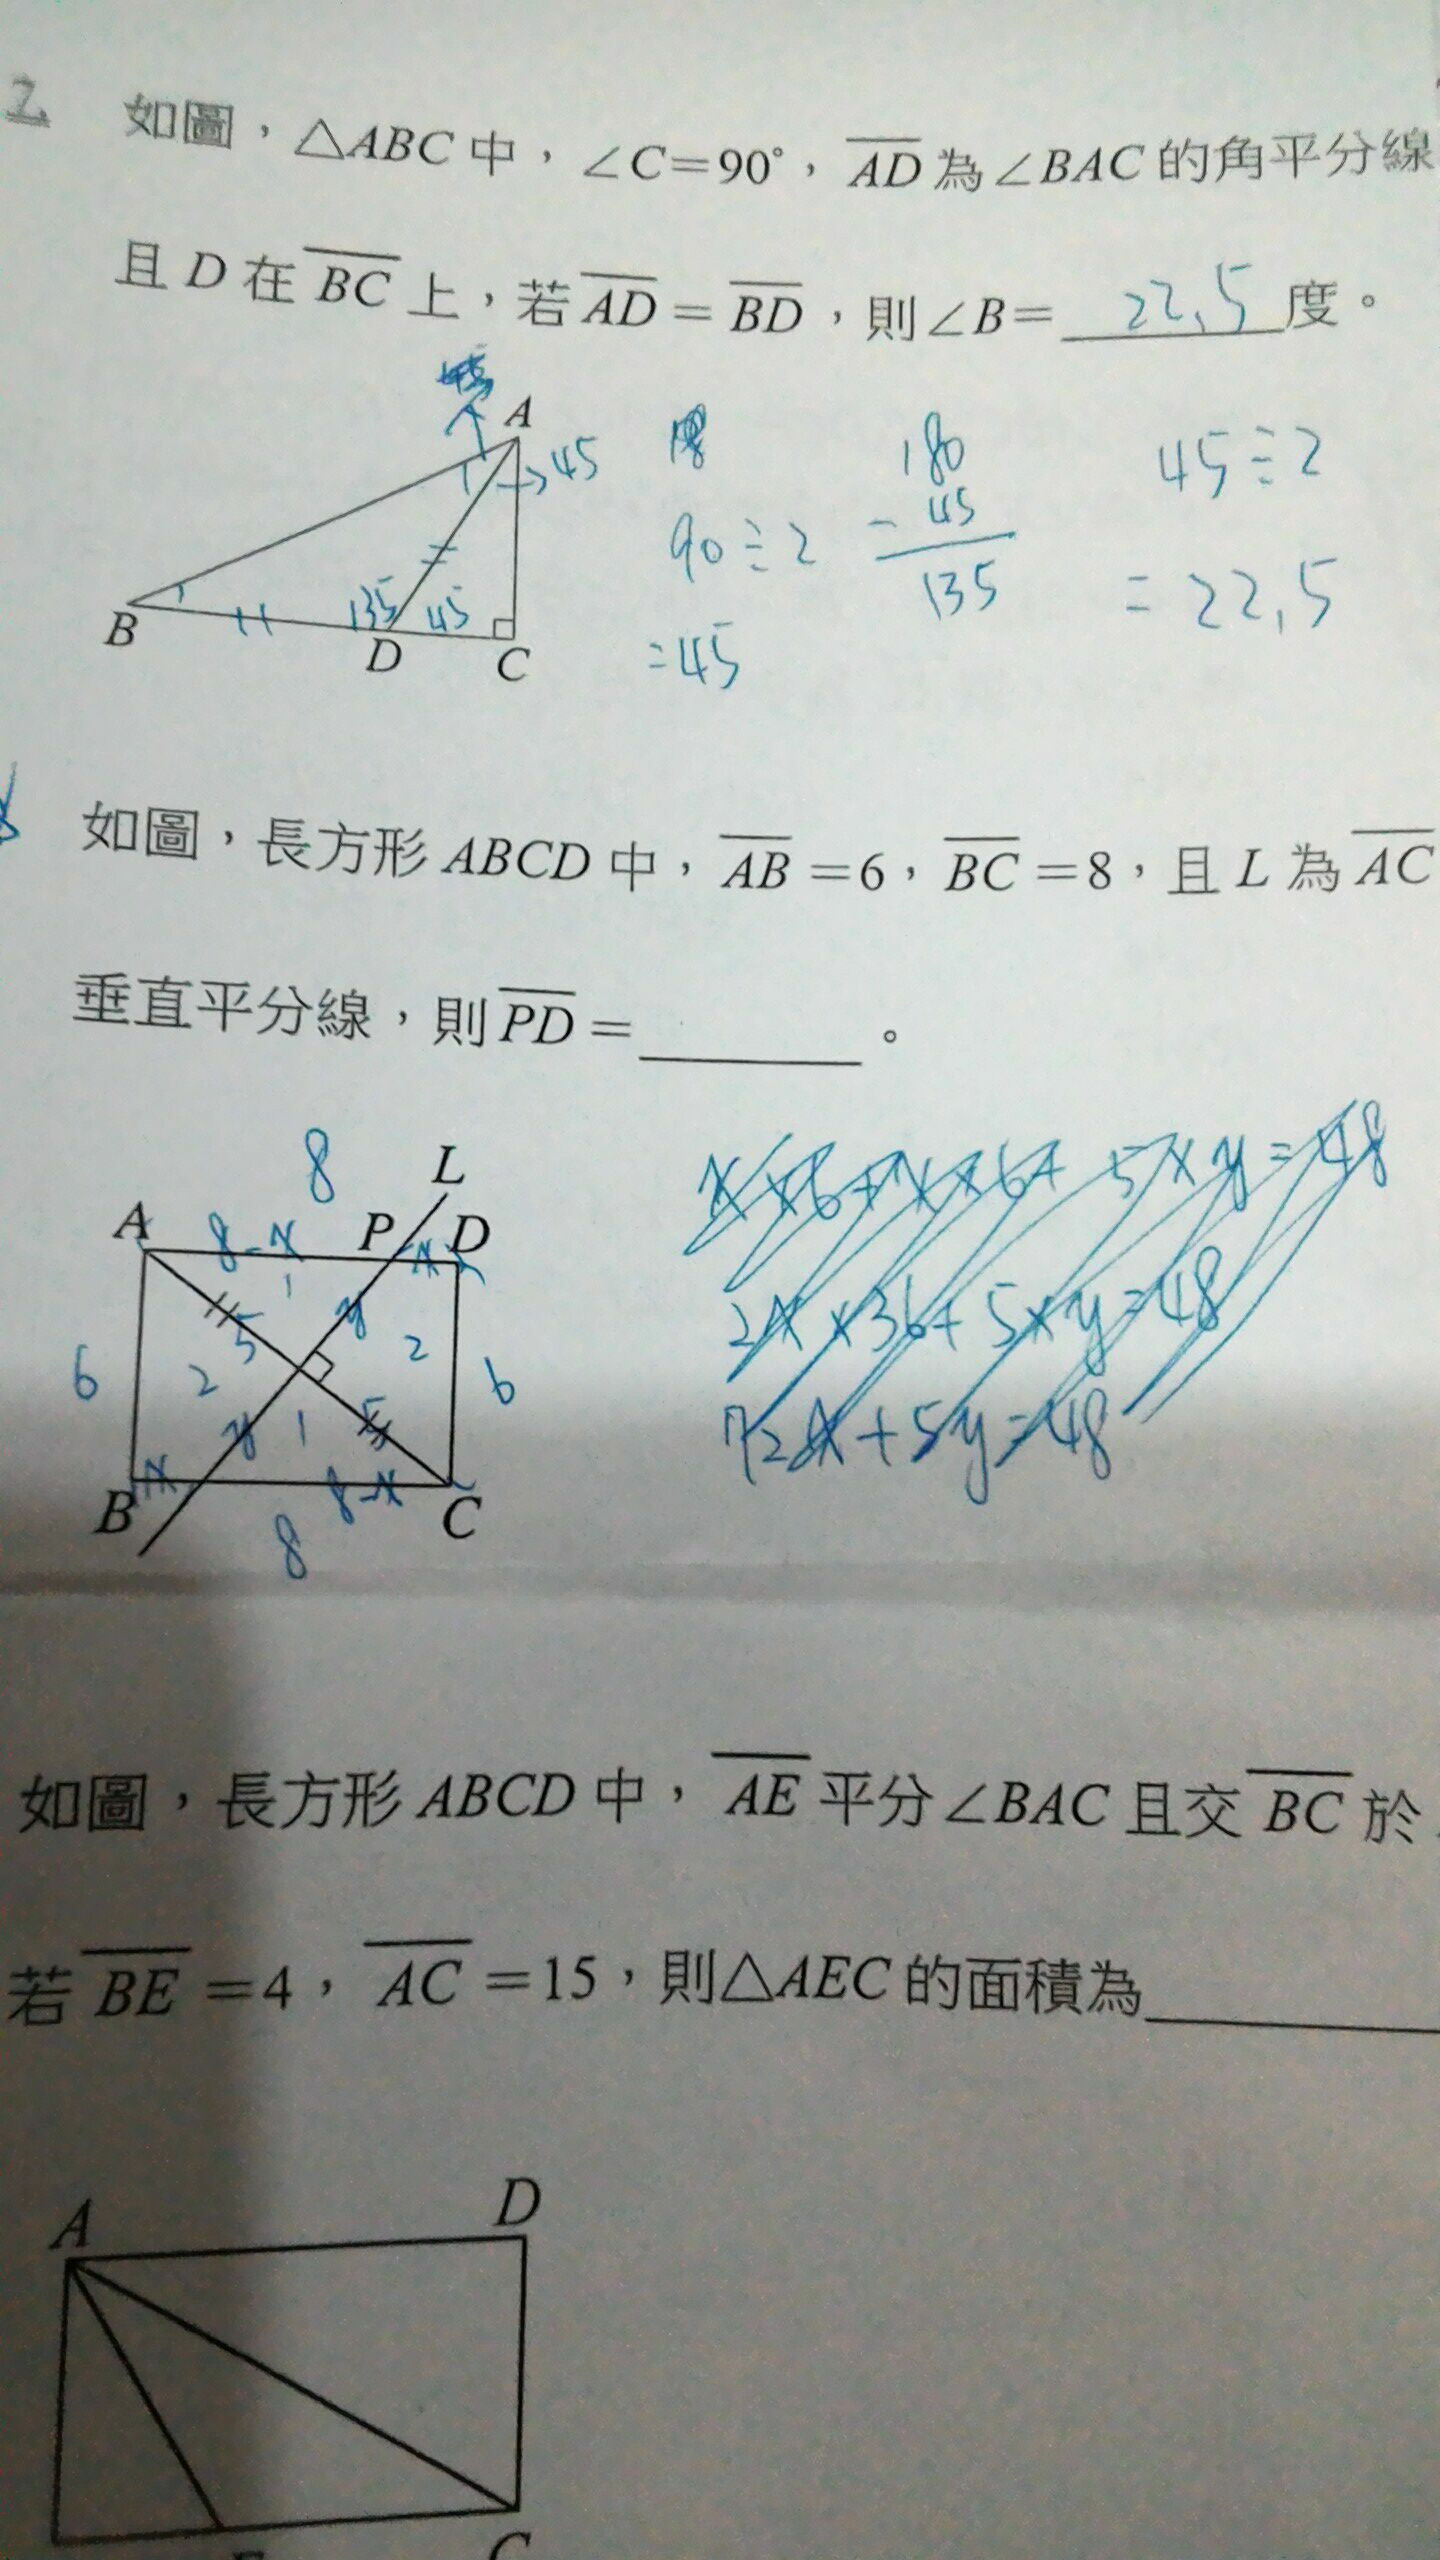 2. 如圖，△ABC中，∠C=90°，AD為∠BAC的角平分線
且D在BC上，若AD=BD，則∠B= 22.5 度。
A
45
B
135
45
D
C
90÷2
=45
180
-45
135
45÷2
=22.5
如圖，長方形ABCD中，AB=6，BC=8，且L為AC
垂直平分線，則PD=______。
8
L
A
8-x
P
x
D
1
5
y
2
6
2
6
y
1
5
B
x
8-x
C
8
x×6+x×6+5×y=48
2x×36+5×y=48
72x+5y=48
如圖，長方形ABCD中，AE平分∠BAC且交BC於
若BE=4，AC=15，則△AEC的面積為______
A
D
C